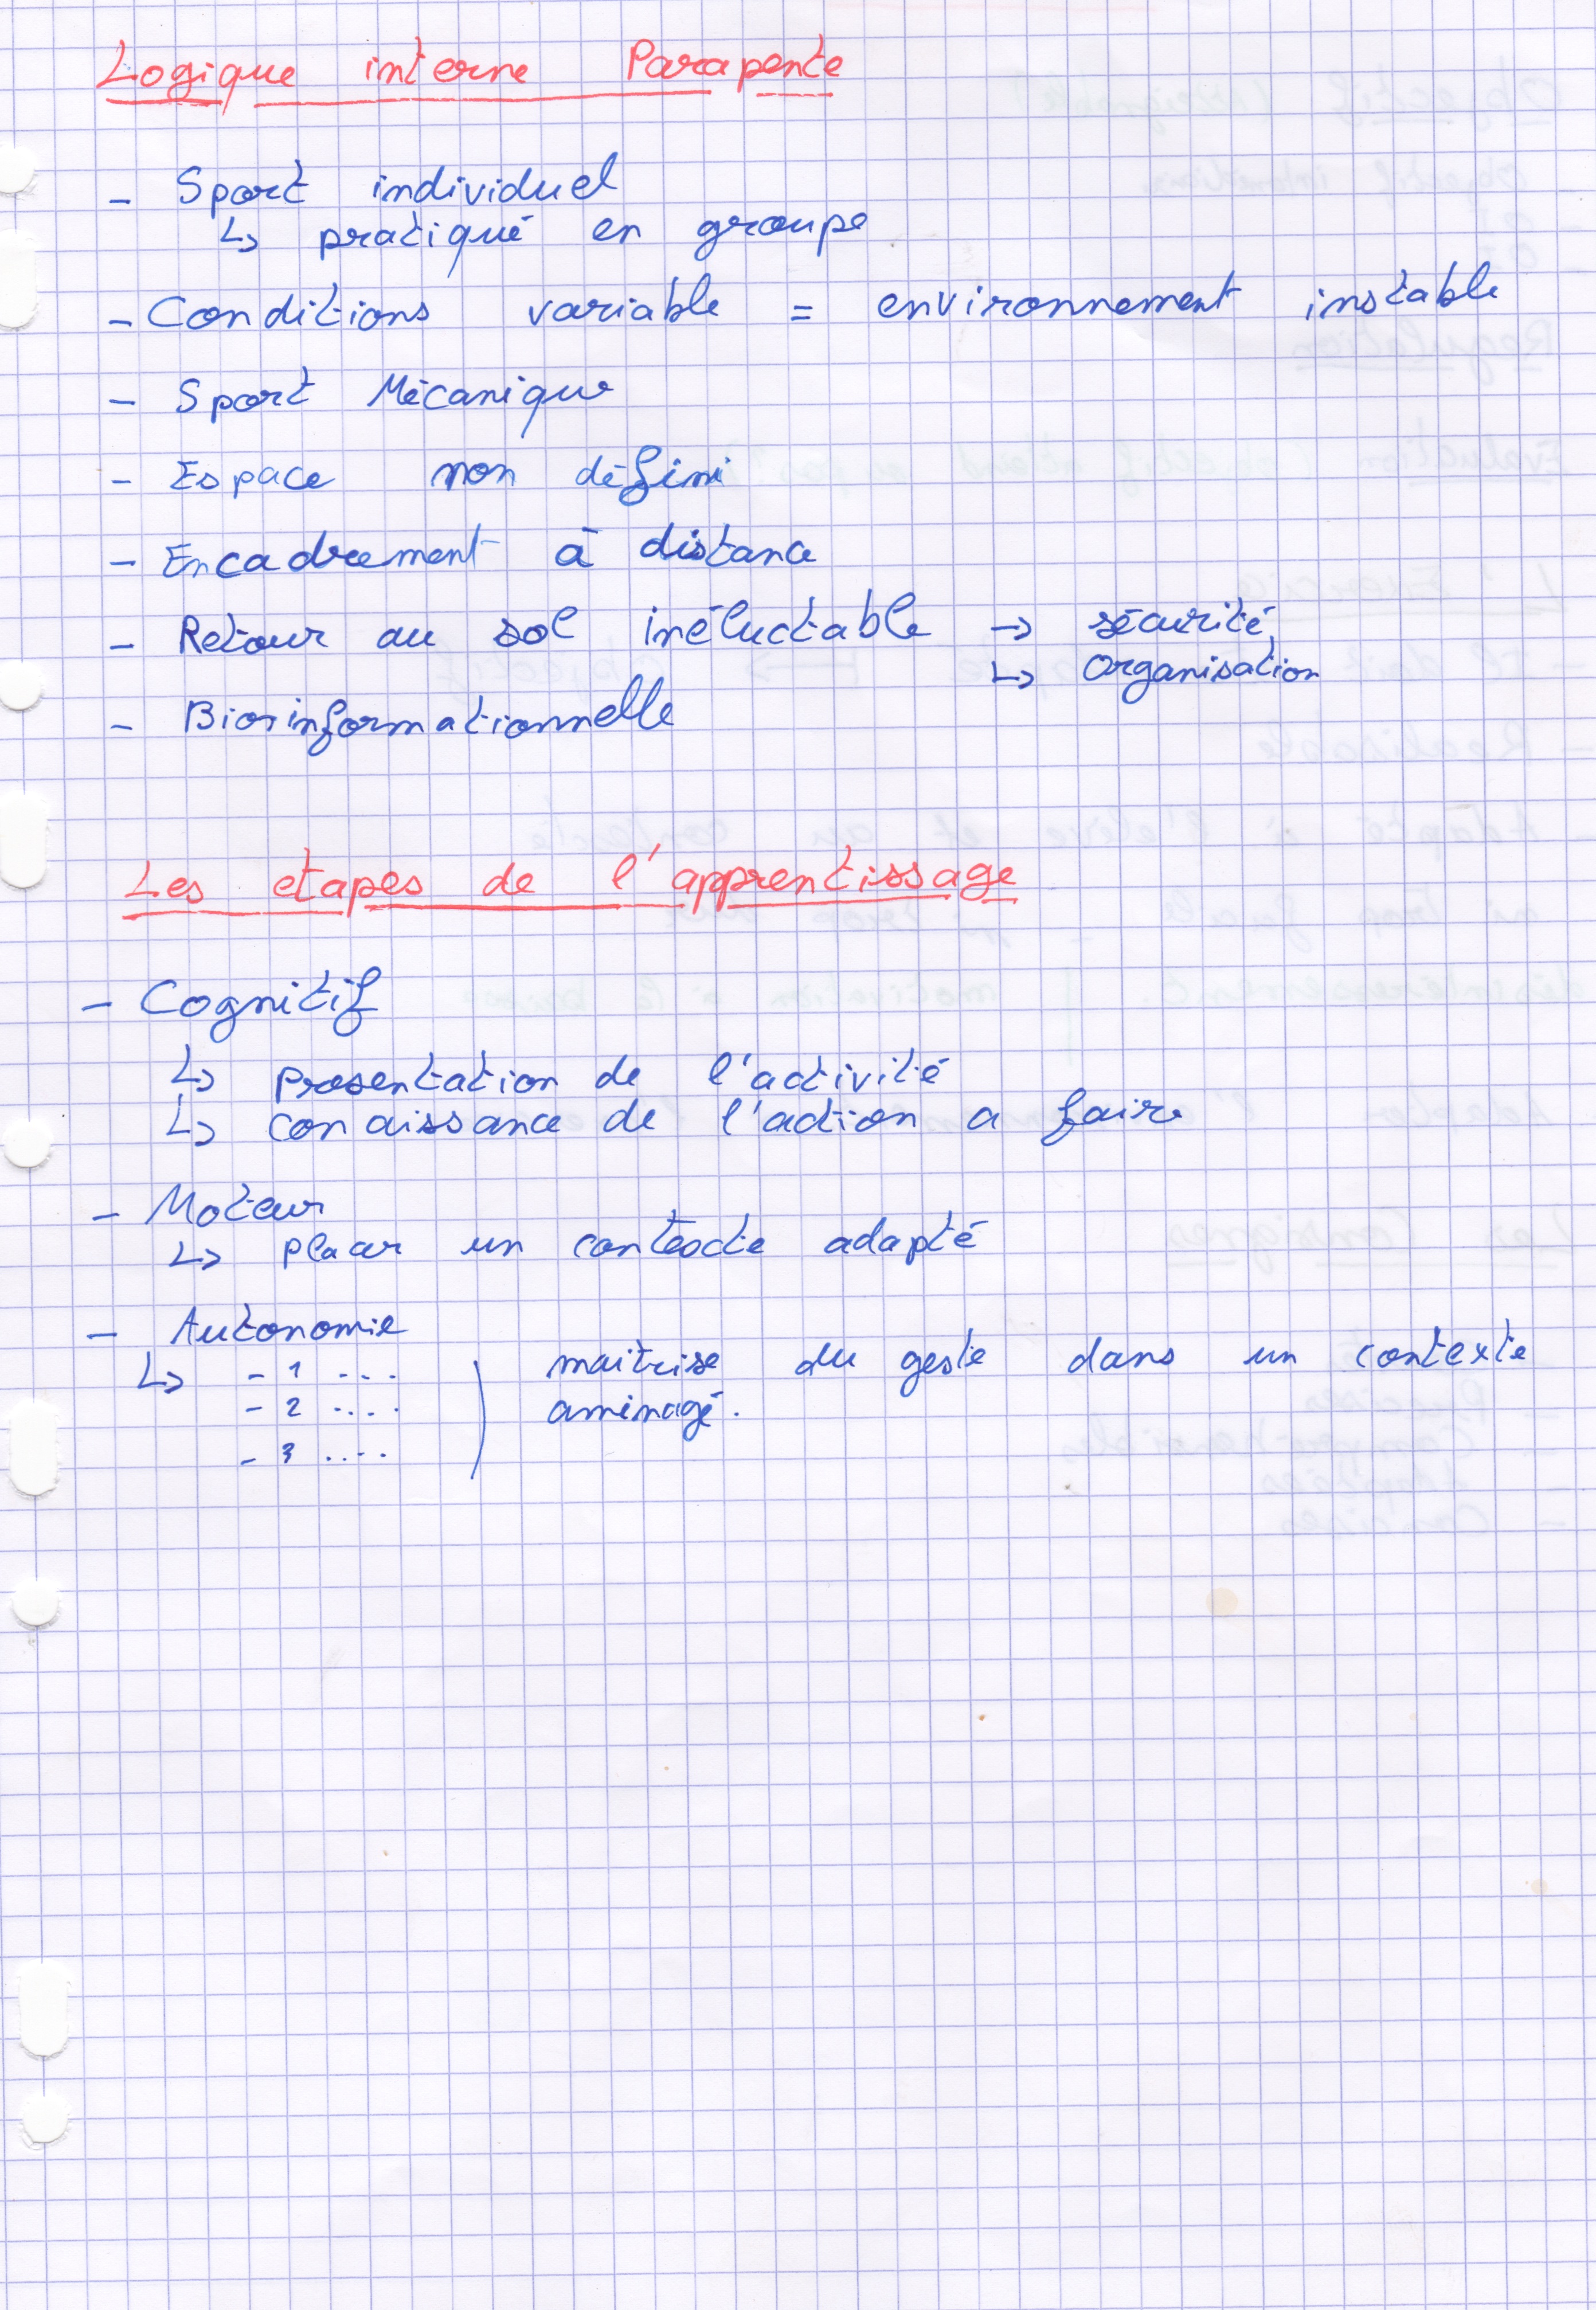 Logique interne Parapente
- Sport individuel
↳ pratiqué en groupe
- Conditions variable = environnement instable
- Sport Mécanique
- Espace non défini
- Encadrement à distance
- Retour au sol inéluctable → sécurité
↳ Organisation
- Bioinformationnelle
Les etapes de l'apprentissage
- Cognitif
↳ presentation de l'activité
↳ connaissance de l'action a faire
- Moteur
↳ placer un contexte adapté
- Autonomie
↳ - 1 ... maitrise du geste dans un contexte
- 2 .... aménagé.
- 3 ....